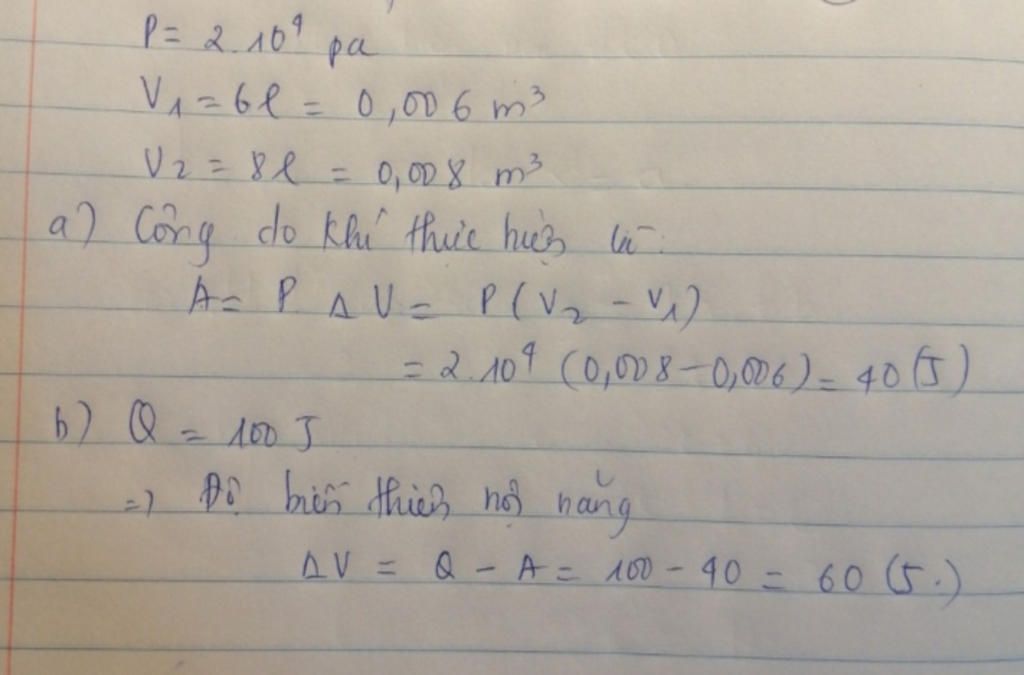 P = 2.10⁴ pa
V₁ = 6l = 0,006 m³
V₂ = 8l = 0,008 m³
a) Công do khí thực hiện là:
A = P. ΔV = P(V₂ - V₁)
= 2.10⁴ (0,008 - 0,006) = 40 (J)
b) Q = 100 J
=> Độ biến thiên nội năng
ΔV = Q - A = 100 - 40 = 60 (J.)